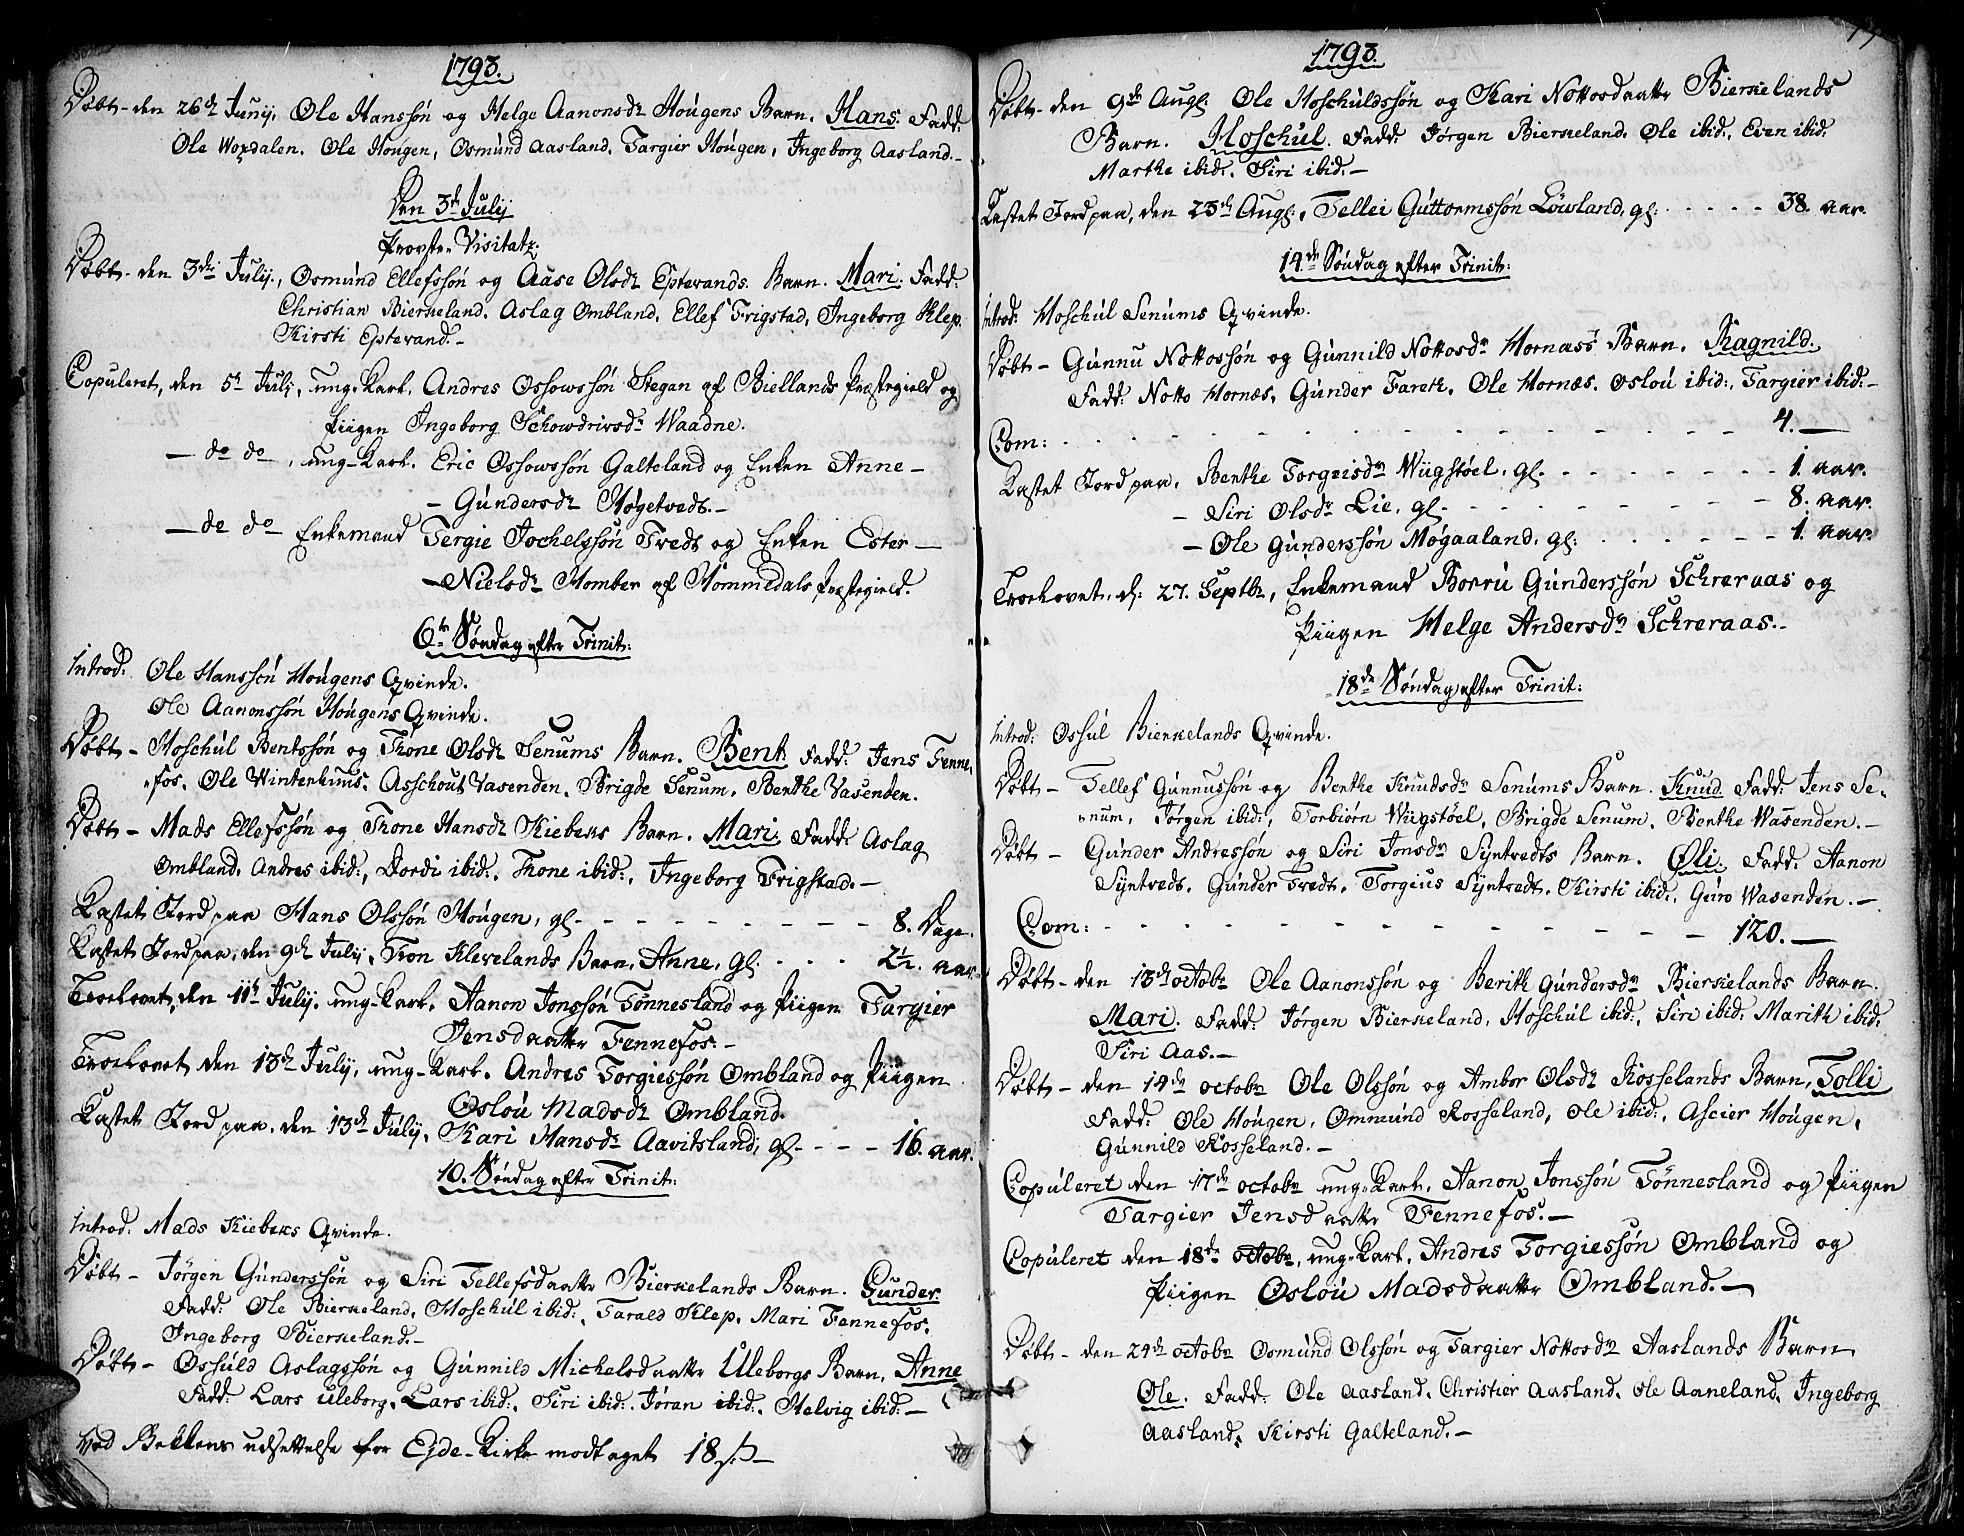 1793.
Döbt- den 26de Junij. Ole Hanssön og Helge Aanonsdr Hougens Barn. Hans. Fadd:
Ole Woxdalen. Ole Hougen, Osmund Aasland. Targier Hougen, Ingeborg Aasland.-
Den 3de Julij
Provste Visitatz.
Döbt- den 3die Julij., Osmund Ellefssön og Aase Olsdr Eptevands Barn. Mari. Fadd:
Christian Bierkeland. Aslag Ombland. Ellef Frigstad. Ingeborg Klep.
Kirsti Eptevand.-
Copuleret, den 5te Julj, ung-Karl. Andres Ossowssön Stegan af Biellands Præstegield og
Piigen Ingeborg Schowdrivsdr Waadne.
- do do, ung-Karl. Eric Ossowssön Galteland og Enken Anne-
- Gundersdr Høgetvedt.-
- do do Enkemand Tergie Jochelssön Tvedt og Enken Ester-
- Nielsdr Homber af Hommedals Præstegield.
6te Søndag efter Trinit:
Introd: Ole Hanssön Hougens Qvinde.
Ole Aanonssön Hougens Qvinde.
Döbt- Hoschul Bentssön og Thone Olsdr Senums Barn. Bent. Fadd: Jens Fenne-
fos. Ole Winterhuus. Asschout Vasenden. Brigde Senum. Benthe Vasenden.
Döbt- Mads Ellefssön og Thone Hansdr Kiebeks Barn. Mari. Fadd: Aslag
Ombland. Andres ibid:, Dordi ibid:. Thone ibid:. Ingeborg Frigstad.-
Kastet Jord paa Hans Olssön Hougen, gl- - - - - 8. Dage.
Kastet Jord paa, den 9de Julij. Tron Klevelands Barn. Anne, gl. - - - 2½. aar.
Troelovet, den 11te Julij. ung-Karl. Aanon Jonssön Tönnesland og Piigen Targier
Jensdaatter Fennefos.-
Troelovet den 13de Julij, ung-Karl. Andres Torgiessön Ombland og Piigen
Oslou Madsdr Ombland.
Kastet Jord paa. den 13de Julij. Kari Hansdr Aavitsland, gl- - - - 16. aar.
10. Søndag efter Trinit:
Introd. Mads Kiebeks Qvinde.
Döbt- Jörgen Gunderssön og Siri Tellefsdaatter Bierkelands Barn. Gunder.
Fadd: Ole Bierkeland. Hoschul ibid:, Tarald Klep. Mari Fennefos.
Ingeborg Bierkeland.-
Döbt- Osfuld Aslagssön og Gunnild Michelsdaatter Uleborgs Barn, Anne
Fadd: Lars Uleborg. Lars ibid:. Siri ibid:. Jöran ibid:. Helvig ibid:-
Ved Bekkens udsettelse for Eyde-Kirke modtaget 18 s.-
1793.
Döbt- den 9de Augl: Ole Hoschuldssön og Kari Nottosdaatter Bierkelands
Barn. Hoschul. Fadd: Jörgen Bierkeland. Ole ibid:. Even ibid:
Marthe ibid:. Siri ibid:-
Kastet Jord paa, den 23de Augl:. Tellei Guttormssön Löwland, gl: - - - - 38. aar.
14de Søndag efter Trinit:
Introd: Hoschul Senums Qvinde.
Döbt- Gunnu Nottossön og Gunnild Nottosdr Hornæss Barn. Ragnild.
Fadd: Notto Hornæs. Gunder Fareth. Ole Hornæs. Oslou ibid:. Targier ibid:-
Com: - - - - - - 4.-
Kastet Jord paa. Benthe Torgeisdr Wiigstöel. gl. - - - - 1. aar.
- Siri Olsdr Lie. gl. - - - - 8. aar.
- Ole Gunderssön Mogaaland. gl: - - - - 1. aar.
Troelovet. d: 27. Septbr, Enkemand Borru Gunderssön Schreraas og
Piigen Helge Andersdr Schreraas.-
18de Søndag efter Trinit:
Introd: Osful Bierkelands Qvinde.
Döbt- Tellef Gunnussön og Benthe Knudsdr Senums Barn. Knud. Fadd: Jens Se-
num, Jörgen ibid:, Torbiörn Wiigstöel. Brigde Senum. Benthe Wasenden.-
Döbt- Gunder Andressön og Siri Jonsdr Syntvedts Barn. Oli. Fadd: Aanon
Syntvedt. Gunder Tvedt. Torgius Syntvedt. Kirsti ibid:. Guro Wasenden.-
Com: - - - - - - 120.-
Döbt- den 13de octobr Ole Aanonssön og Berith Gundersdr Bierkelands Barn.
Mari. Fadd: Jörgen Bierkeland. Hoschul ibid:. Siri ibid: Marith ibid:
Siri Aas.-
Döbt- den 14de octobr Ole Olssön og Ambor Olsdr Rosselands Barn. Tolli
Fadd: Ole Hougen. Ommund Rosseland. Ole ibid:. Ascier Hougen.
Gunnild Rosseland.-
Copuleret den 17de octobr ung-Karl. Aanon Jonssön Tönnesland og Piigen
Targier Jensdaatter Fennefos.-
Copuleret den 18de octobr. ung-Karl. Andres Torgiessön Ombland og
Piigen Oslou Madsdaatter Ombland.-
Döbt- den 24de octobr Osmund Olssön og Targier Nottosdr Aaslands Barn
Ole. Fadd: Ole Aasland. Christier Aasland. Ole Aaneland. Ingeborg
Aasland. Kirsti Galteland.-